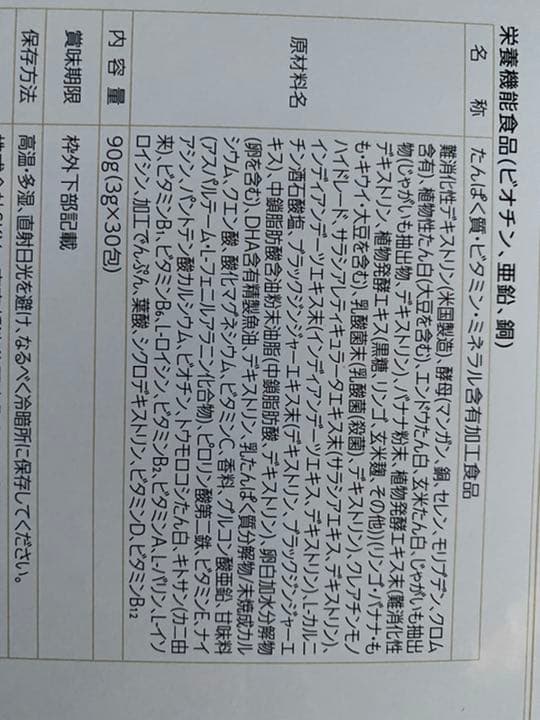 栄養機能食品(ビオチン、亜鉛、銅)
名 称
たんぱく質・ビタミン・ミネラル含有加工食品
原材料名
難消化性デキストリン(米国製造)、酵母(マンガン、銅、セレン、モリブデン、クロム
含有)、植物性たん白(大豆を含む)、エンドウたん白、玄米たん白、じゃがいも抽出
物(じゃがいも抽出物、デキストリン)、バナナ粉末、植物発酵エキス末(難消化性
デキストリン、植物発酵エキス(黒糖、リンゴ、玄米麹、その他))(リンゴ・バナナ・も
も・キウイ・大豆を含む)、乳酸菌末(乳酸菌(殺菌)、デキストリン)、クレアチンモノ
ハイドレード、サラシアレティキュラータエキス末(サラシアエキス、デキストリン)、
インディアンデーツエキス末(インディアンデーツエキス、デキストリン)、L-カルニ
チン酒石酸塩、ブラックジンジャーエキス末(デキストリン、ブラックジンジャーエ
キス)、中鎖脂肪酸含油粉末油脂(中鎖脂肪酸、デキストリン)、卵白加水分解物
(卵を含む)、DHA含有精製魚油、デキストリン、乳たんぱく質分解物/未焼成カル
シウム、クエン酸、酸化マグネシウム、ビタミンC、香料、グルコン酸亜鉛、甘味料
(アスパルテーム・L-フェニルアラニン化合物)、ピロリン酸第二鉄、ビタミンE、ナイ
アシン、パントテン酸カルシウム、ビオチン、トウモロコシたん白、キトサン(カニ由
来)、ビタミンB₁、ビタミンB₆、L-ロイシン、ビタミンB₂、ビタミンA、L-バリン、L-イソ
ロイシン、加工でんぷん、葉酸、シクロデキストリン、ビタミンD、ビタミンB₁₂
内 容 量
90g(3g×30包)
賞味期限
枠外下部記載
保存方法
高温・多湿、直射日光を避け、なるべく冷暗所に保存してください。